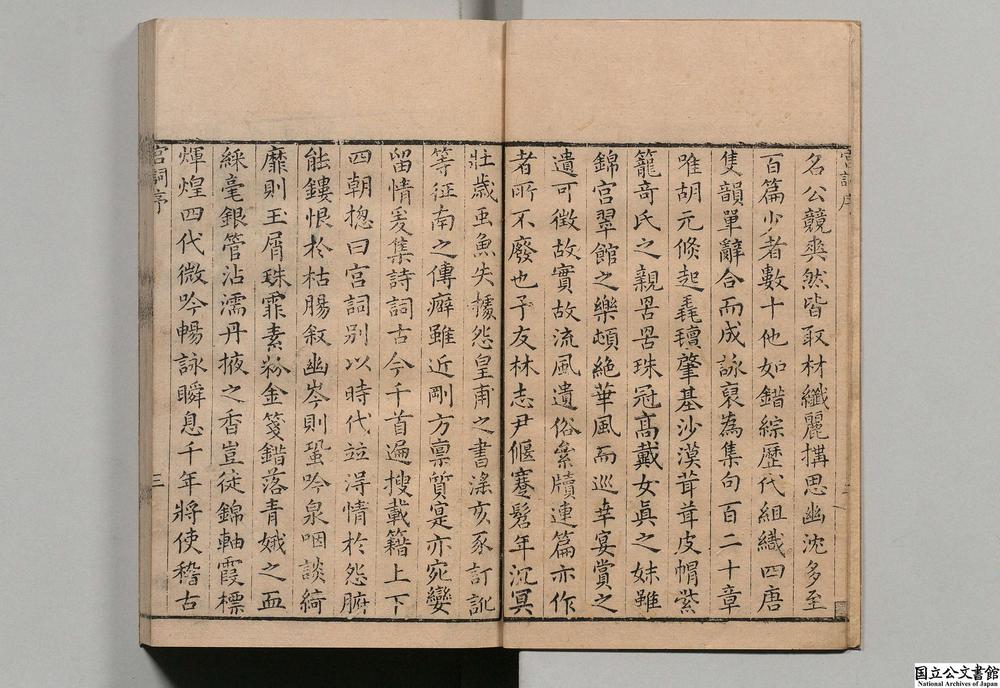 宮詞序
名公競爽然皆取材纖麗搆思幽沈多至
百篇少者數十他如錯綜歷代組織四唐
隻韻單辭合而成詠裒為集句百二十章
唯胡元倏起毳氊肇基沙漠茸茸皮帽紫
籠奇氏之親罟罟珠冠高戴女真之妹雖
錦宮翠館之樂頓絕華風而巡幸宴賞之
遺可徵故實故流風遺俗彖牘連篇亦作
者所不廢也予友林志尹偃蹇髫年沉冥
壯歲蟲魚失據怨皇甫之書滛亥豕訂訛
等征南之傳癖雖近剛方稟質寔亦宛孌
留情爰集詩詞古今千首遍搜載籍上下
四朝揔曰宮詞别以時代竝淂情於怨腑
能鏤恨於枯腸叙幽岑則蛩吟泉咽談綺
靡則玉屑珠霏素粉金箋錯落青娥之血
綵毫銀管沾濡丹掖之香豈徒錦軸霞標
煇煌四代微吟暢詠瞬息千年將使稽古
宮詞序
三
国立公文書館
National Archives of Japan